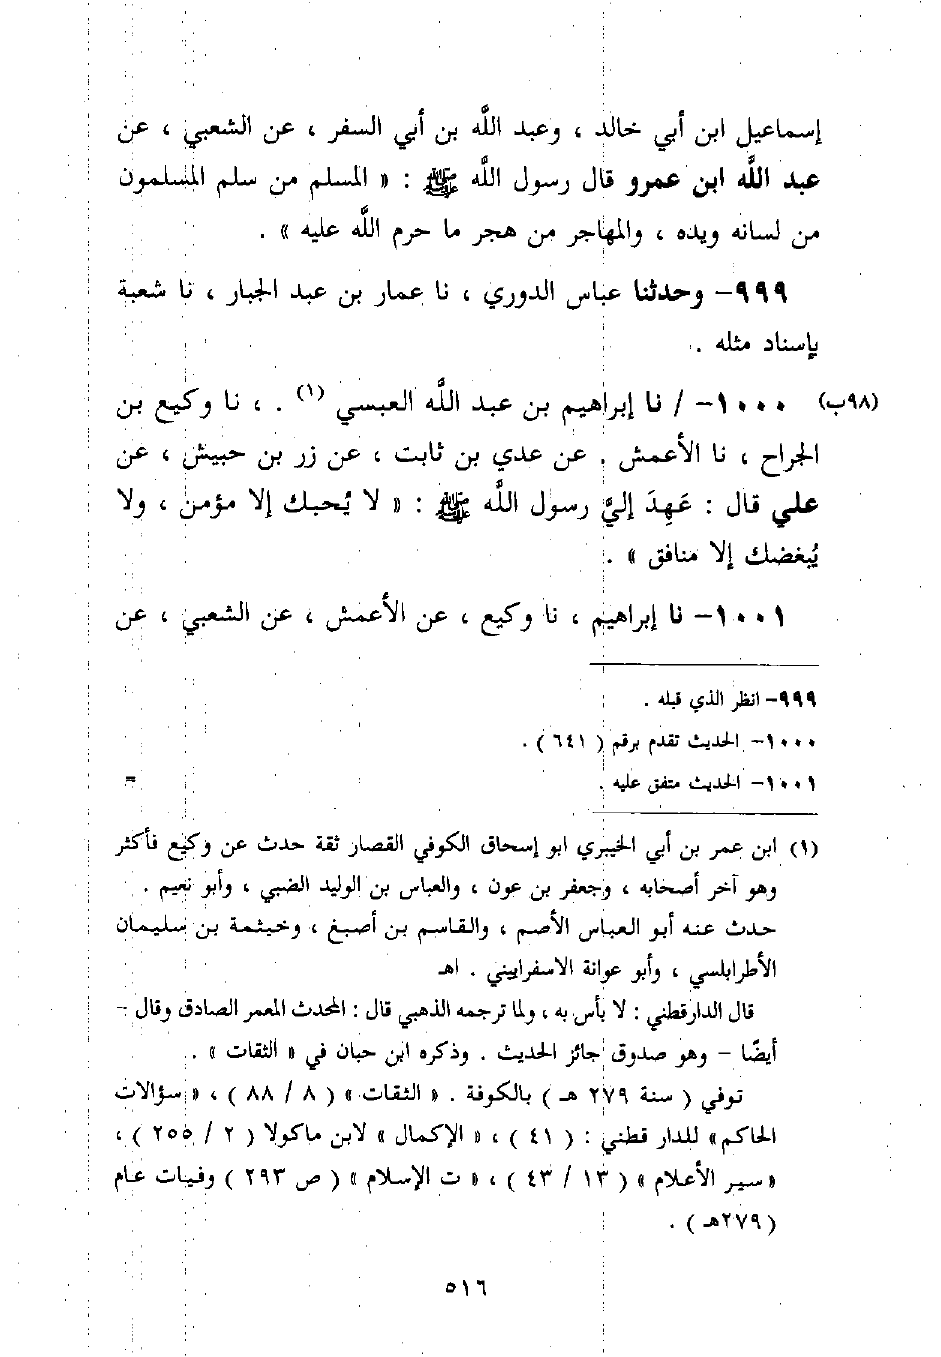 إسماعيل ابن أبي خالد ، وعبد اللَّه بن أبي السفر ، عن الشعبي ، عن
عبد اللَّه ابن عمرو قال رسول اللَّه ﷺ : « المسلم من سلم المسلمون
من لسانه ويده ، والمهاجر من هجر ما حرم اللَّه عليه » .
٩٩٩– وحدثنا عباس الدوري ، نا عمار بن عبد الجبار ، نا شعبة
بإسناد مثله .
(٩٨ب) ١٠٠٠– / نا إبراهيم بن عبد اللَّه العبسي (١) . ، نا وكيع بن
الجراح ، نا الأعمش . عن عدي بن ثابت ، عن زر بن حبيش ، عن
علي قال : عَهِدَ إليَّ رسول اللَّه ﷺ : « لا يُحبك إلا مؤمن ، ولا
يُبغضك إلا منافق » .
١٠٠١– نا إبراهيم ، نا وكيع ، عن الأعمش ، عن الشعبي ، عن
٩٩٩– انظر الذي قبله .
١٠٠٠– الحديث تقدم برقم ( ٦٤١ ) .
١٠٠١– الحديث متفق عليه . =
(١) ابن عمر بن أبي الخيبري ابو إسحاق الكوفي القصار ثقة حدث عن وكيع فأكثر
وهو آخر أصحابه ، وجعفر بن عون ، والعباس بن الوليد الضبي ، وأبو نعيم .
حدث عنه أبو العباس الأصم ، والقاسم بن أصبغ ، وخيثمة بن سليمان
الأطرابلسي ، وأبو عوانة الاسفراييني . اهـ
قال الدارقطني : لا بأس به ، ولما ترجمه الذهبي قال : المحدث المعمر الصادق وقال –
أيضًا – وهو صدوق جائز الحديث . وذكره ابن حبان في « الثقات » .
توفي ( سنة ٢٧٩ هـ ) بالكوفة . « الثقات » ( ٨ / ٨٨ ) ، « سؤالات
الحاكم» للدار قطني : ( ٤١ ) ، « الإكمال » لابن ماكولا ( ٢ / ٢٥٥ ) ،
« سير الأعلام » ( ١٣ / ٤٣ ) ، « ت الإسلام » ( ص ٢٩٣ ) وفيات عام
( ٢٧٩هـ ) .
٥١٦